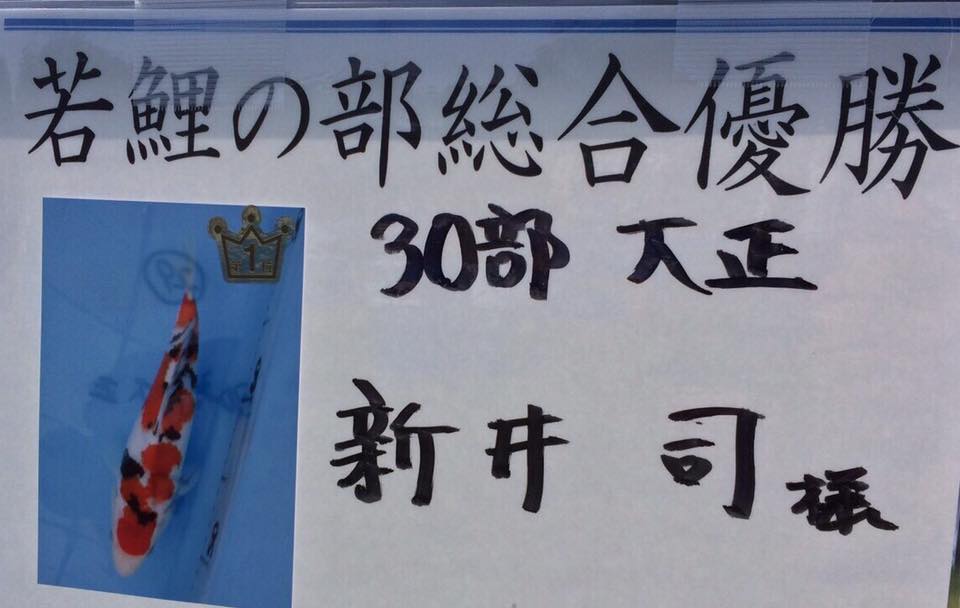 若鯉の部総合優勝
1
30部 大正
新井 司 様